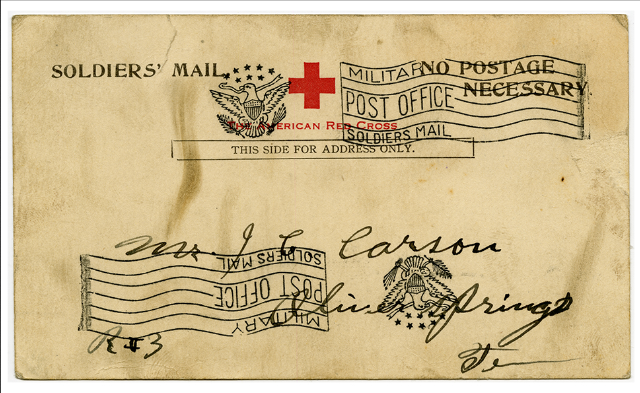 SOLDIERS' MAIL.
NO POSTAGE
NECESSARY
MILITARY
POST OFFICE
SOLDIERS MAIL
THE AMERICAN RED CROSS
THIS SIDE FOR ADDRESS ONLY.
Mr. J C Carson
SOLDIERS MAIL
POST OFFICE
MILITARY
Oliver Springs
R#3
Ten